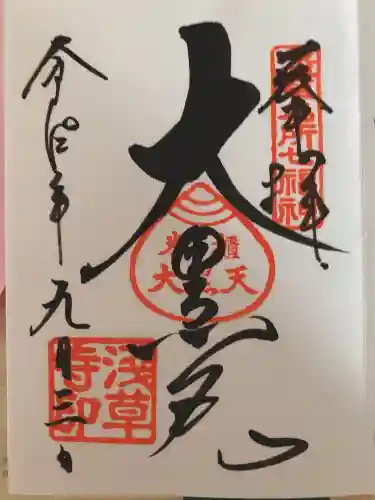 奉拝
浅草名所七福神
大黒天
米櫃
大黒天
浅草寺印
令和元年九月三日